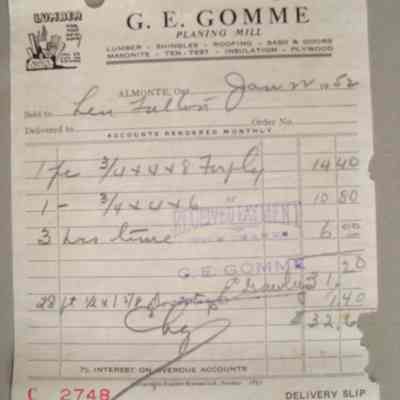 LUMBER
G. E. GOMME
PLANING MILL
LUMBER - SHINGLES - ROOFING - SASH & DOORS
MASONITE - TEN-TEST - INSULATION - PLYWOOD
ALMONTE, Ont. Jan 22 1952
Sold to Len Fulton
Delivered to Order No.
ACCOUNTS RENDERED MONTHLY
1 pc 3/4 x 4 x 8 Firply 14 40
1 - 3/4 x 4 x 6 10 80
RECEIVED PAYMENT
3 hrs time 6 00
G. E. GOMME 31 20
28 ft 1/2 x 1 3/8 1.40
$ 32.6
Chg
7% INTEREST ON OVERDUE ACCOUNTS
C 2748 DELIVERY SLIP